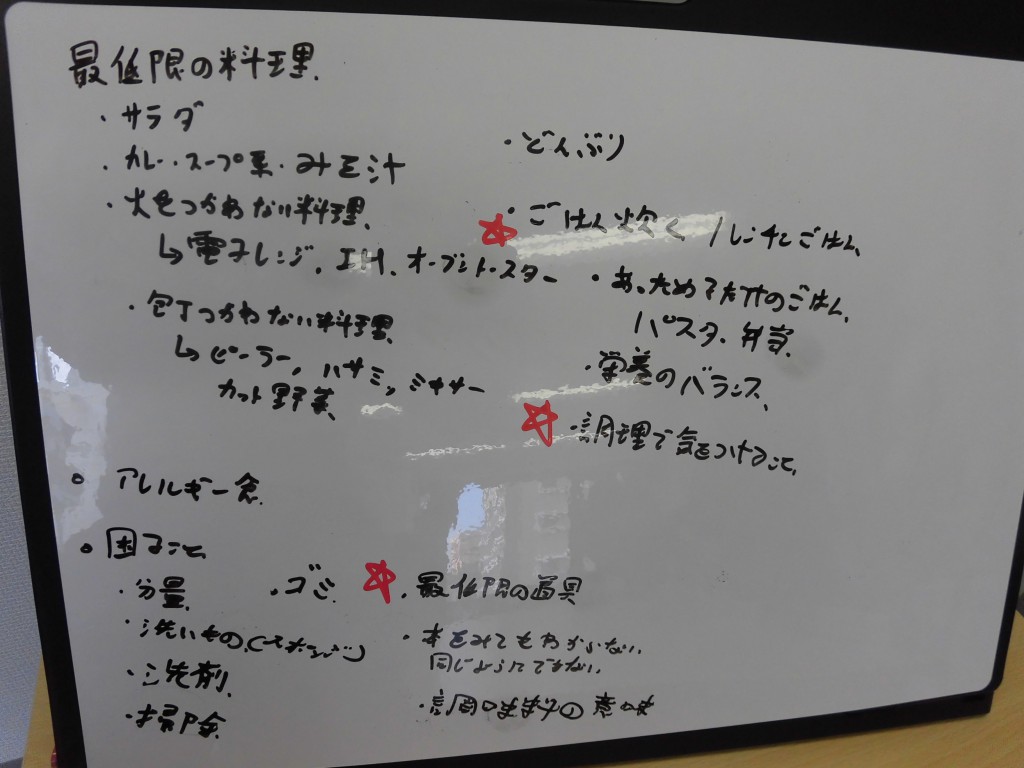 最低限の料理.
・サラダ
・カレー・スープ系・みそ汁
・火をつかわない料理.
↳電子レンジ、IH、オーブントースター
・包丁つかわない料理.
↳ピーラー, ハサミ, シキサー
カット野菜、
・どんぶり
☆・ごはん炊く/レンチンごはん、
・あっためるだけのごはん、
パスタ、弁当、
・栄養のバランス、
☆・調理で気をつけること、
○ アレルギー食.
○ 困ること
・分量
・洗いもの、(スポンジ)
・洗剤、
・掃除
・ゴミ.
☆・最低限の道具
・本をみてもわからない.
同じようにできない.
・調味料の意味